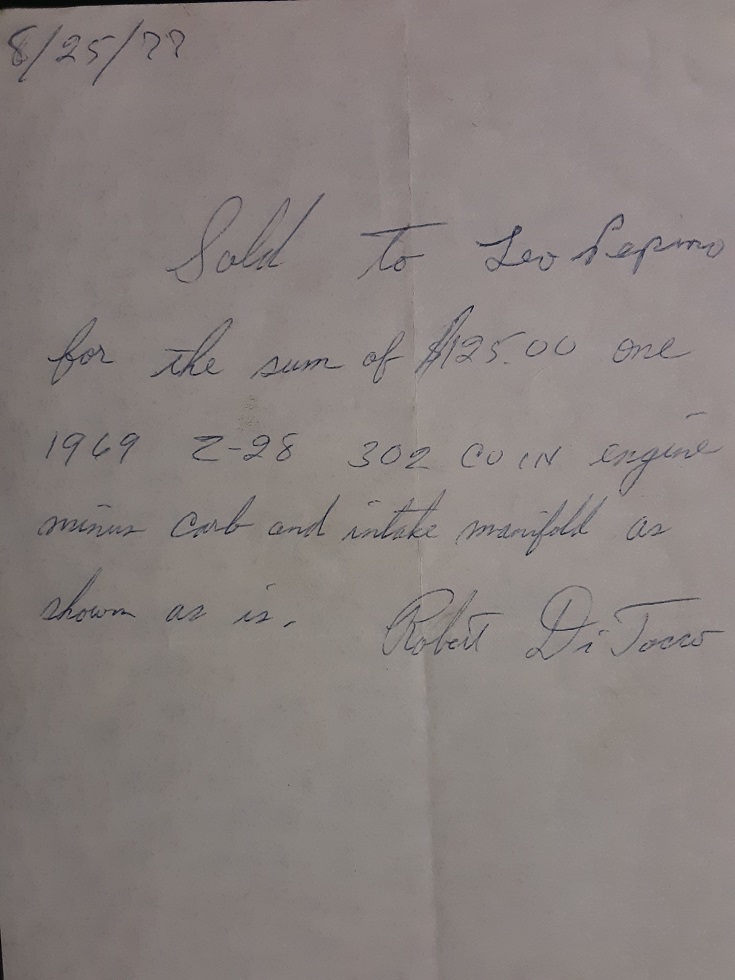 8/25/77
Sold to Leo Pepino
for the sum of $125.00 one
1969 Z-28 302 CU IN engine
minus carb and intake manifold as
shown as is. Robert DiTocco